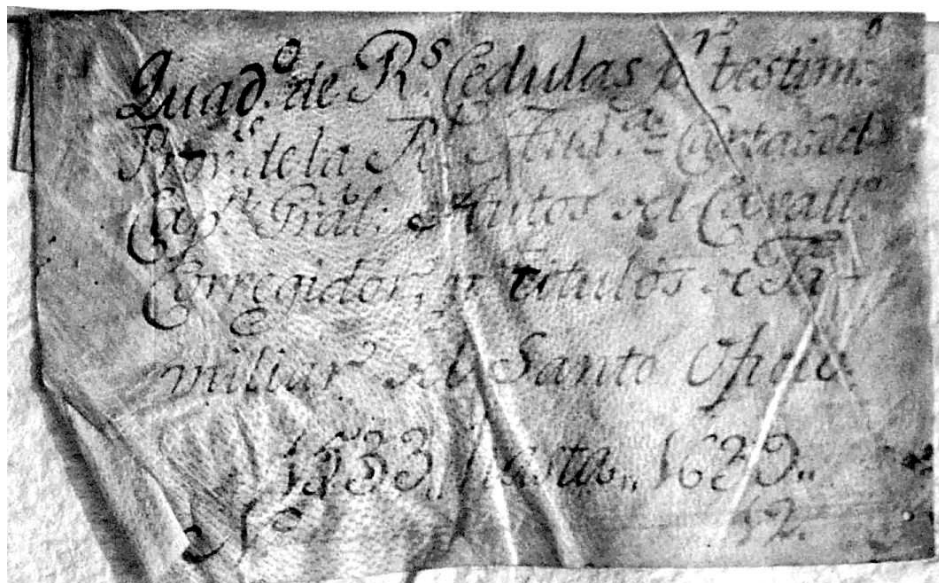 Quad.º de R.s Cedulas p.r testim.º
Prov.s de la R.l Aud.a Cartas del
Cap.n Gràl: Autos del Cavall.º
Corregidor, y titulos de Fa-
miliar.s del Santo Oficio.
1533, hasta,, 1639,,
Nº 52.